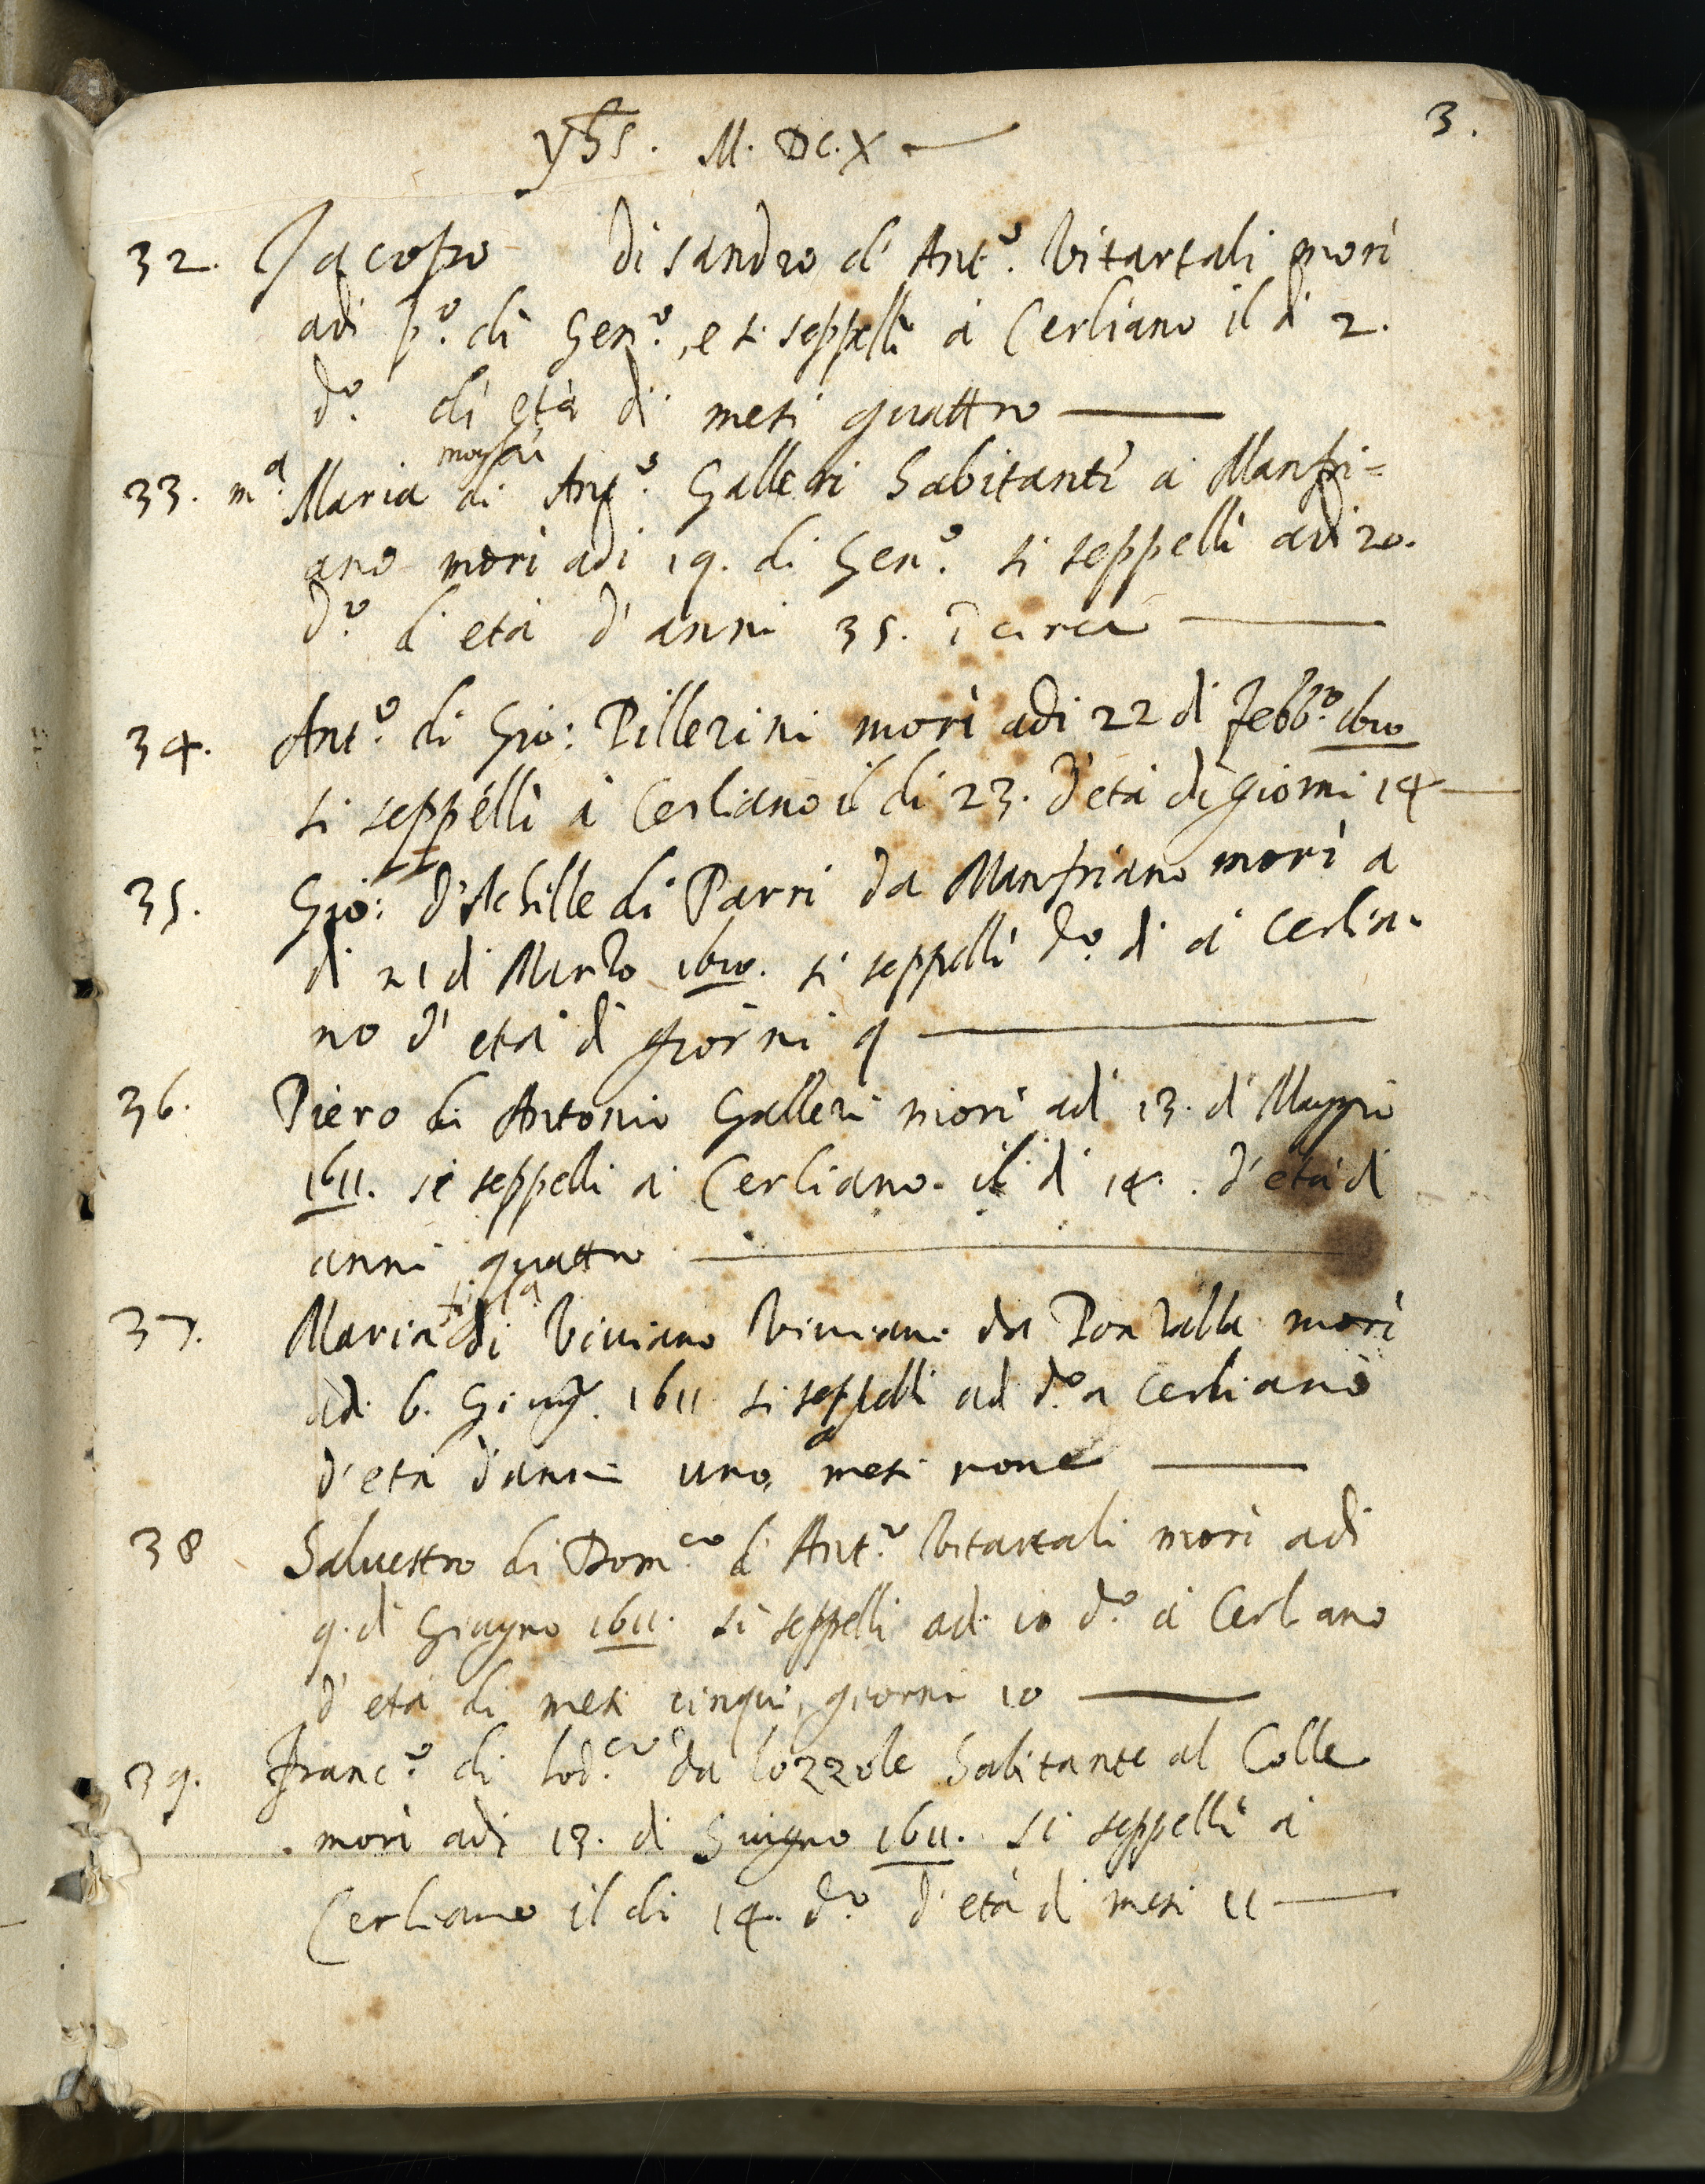 3.
yhs. M. DC. X
32. Jacopo di sandro di Ant.o Vitartali morì
adi p.o di Gen.o, e si seppellì à Cerliano il dì 2.
d.o di età di mesi quattro
moglie
33. m.a Maria di Ant.o Galleri habitante à Manfri=
ano morì adi 19. di Gen.o si seppellì adi 20.
d.o di età d'anni 35. ī circa
34. Ant.o di Gio: Pillerini morì adi 22 di Febb.ro 1610
si seppellì à Cerliano il di 23. d'età di giorni 14
35. Gio: d'Achille di Parri da Manfriano morì a
di 21 di Marzo 1610. si seppellì d.o dì à Cerlia-
no d'età di giorni 9
36. Piero di Antonio Galleri morì adi 13. di Maggio
1611. si seppellì à Cerliano. il dì 14. d'età di
anni quattro
figla
37. Maria di Viviano Viviani da morì
adi 6. Giug. 1611 si seppellì ad d.o a Cerliano
d'età d'anni uno, mesi nove
38 Salvestro di Dom.co di Ant.o Vitartali morì adi
9. di Giugno 1611. si seppellì adi 10 d.o à Cerliano
d'età di mesi cinque, giorni 10
39. Franc.o di Lod.co da Lozzole habitante al Colle
morì adi 13. di Giugno 1611. si seppellì à
Cerliano il di 14. d.o d'età di mesi 11